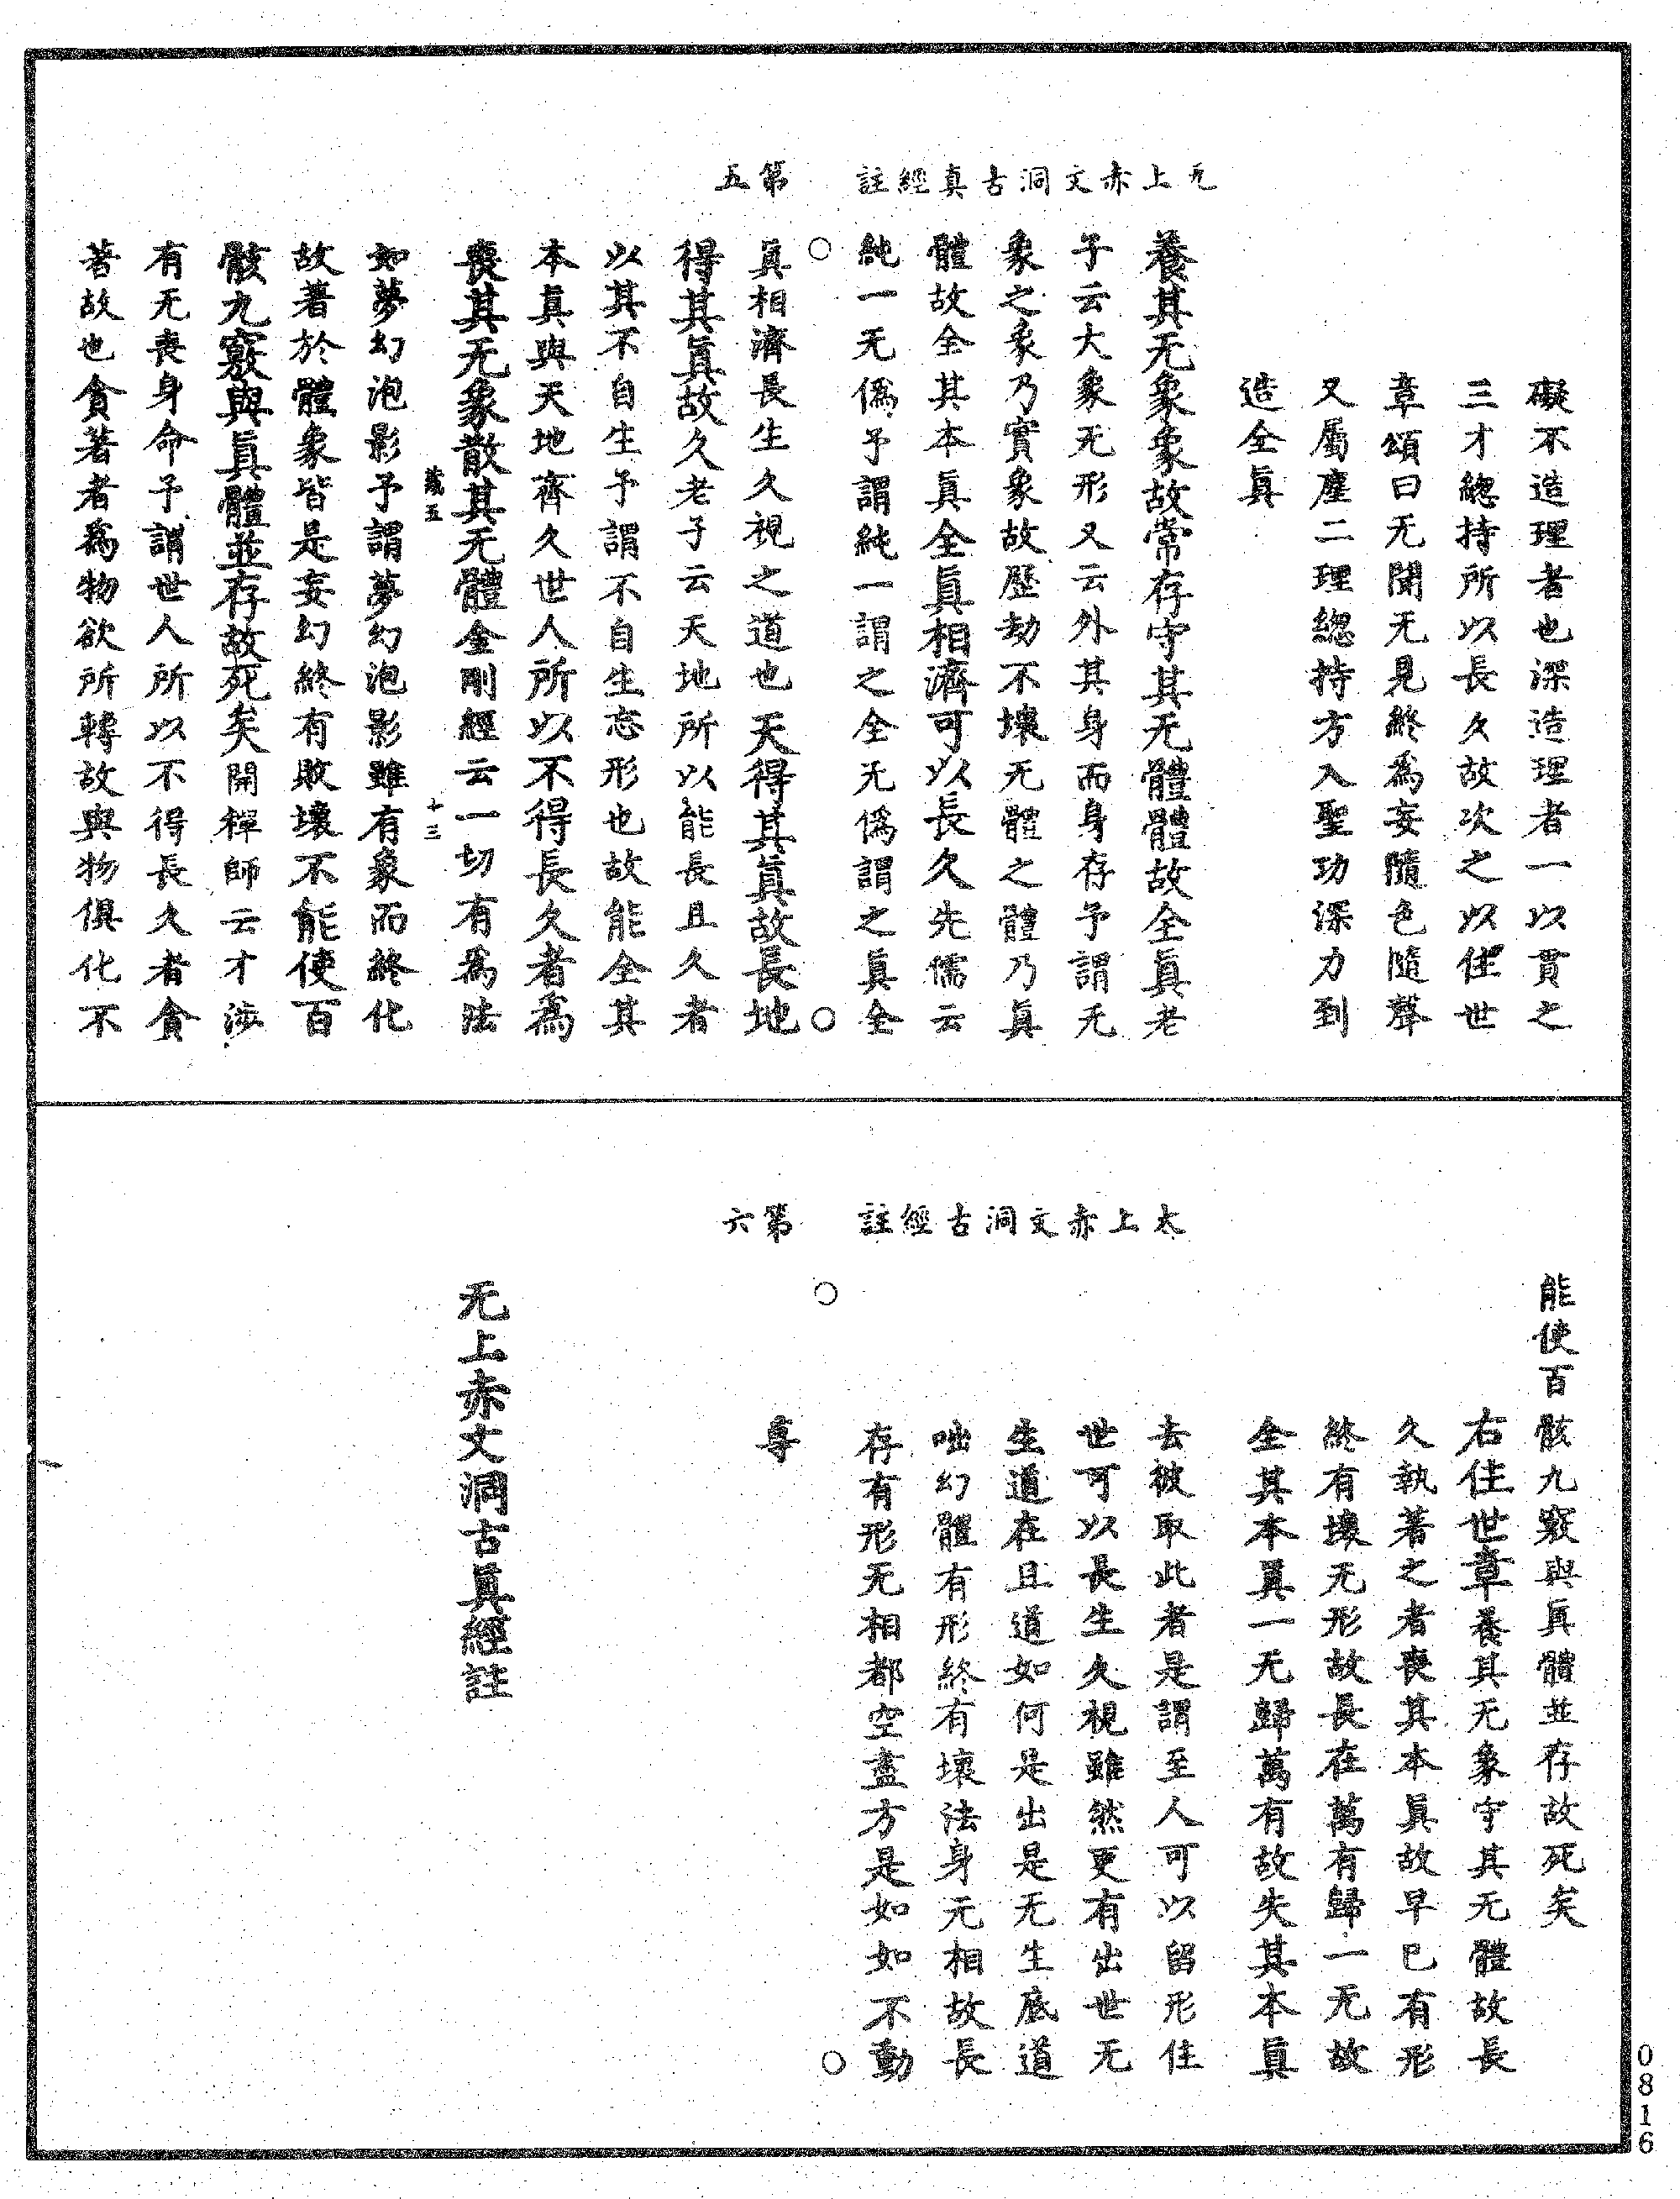 无上赤文洞古真經註　第五
礙不造理者也深造理者一以貫之
三才總持所以長久故次之以住世
章頌曰无聞无見終為妄隨色隨聲
又屬塵二理總持方入聖功深力到
造全真
養其无象象故常存守其无體體故全真老
子云大象无形又云外其身而身存予謂无
象之象乃實象故歷劫不壞无體之體乃真
體故全其本真全真相濟可以長久先儒云
純一无偽予謂純一謂之全无偽謂之真全
真相濟長生久視之道也天得其真故長地
得其真故久老子云天地所以能長且久者
以其不自生予謂不自生忘形也故能全其
本真與天地齊久世人所以不得長久者為
喪其无象散其无體金剛經云一切有為法
藏五　十三
如夢幻泡影予謂夢幻泡影雖有象而終化
故著於體象皆是妄幻終有敗壞不能使百
骸九竅與真體並存故死矣開禪師云才涉
有无喪身命予謂世人所以不得長久者貪
著故也貪著者為物欲所轉故與物俱化不
太上赤文洞古經註　第六
能使百骸九竅與真體並存故死矣
右住世章養其无象守其无體故長
久執著之者喪其本真故早已有形
終有壞无形故長在萬有歸一无故
全其本真一无歸萬有故失其本真
去彼取此者是謂至人可以留形住
世可以長生久視雖然更有出世无
生道在且道如何是出是无生底道
咄幻體有形終有壞法身无相故長
存有形无相都空盡方是如如不動
尊
无上赤文洞古真經註
0816